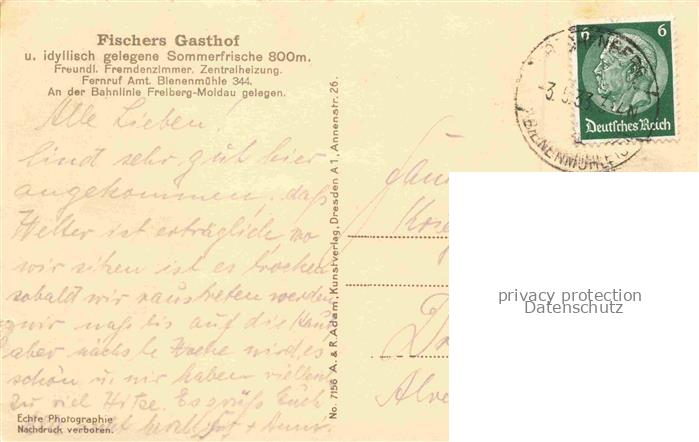 Fischers Gasthof
u. idyllisch gelegene Sommerfrische 800m.
Freundl. Fremdenzimmer. Zentralheizung.
Fernruf Amt. Bienenmühle 344.
An der Bahnlinie Freiberg-Moldau gelegen.
Alle Lieben!
sind sehr gut hier
angekommen, das
Wetter ist erträglich, wo
wir sitzen ist es trocken
sobald wir raustreten werden
wir naß bis auf die Haut
aber nächste Woche wird es
schön u. wir haben vielleicht
zu viel Hitze. Es grüßt Euch
Echte Photographie
Nachdruck verboten.
No. 7156 A. & R. Adam, Kunstverlag, Dresden A 1, Annenstr. 26.
6 6
Deutsches Reich
BIENENMÜHLE
privacy protection
Datenschutz